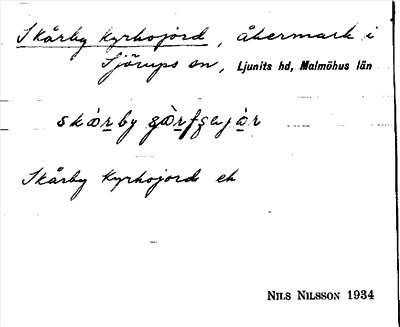 Skårby kyrkojord, åkermark i
Sjörups sn, Ljunits hd, Malmöhus län
skårby
Skårby Kyrkojord ek
NILS NILSSON 1934